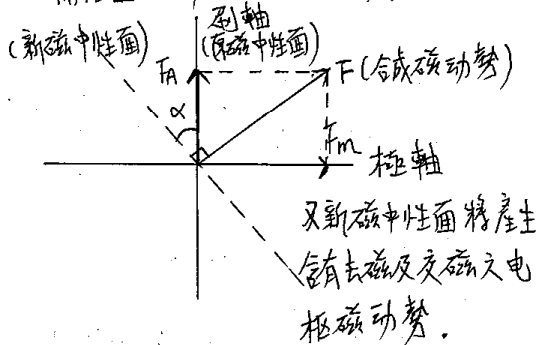 刷軸
(新磁中性面)
(原磁中性面)
FA
F(合成磁动勢)
α
Fm
極軸
又新磁中性面將產生
含有去磁及交磁之电
枢磁动勢.